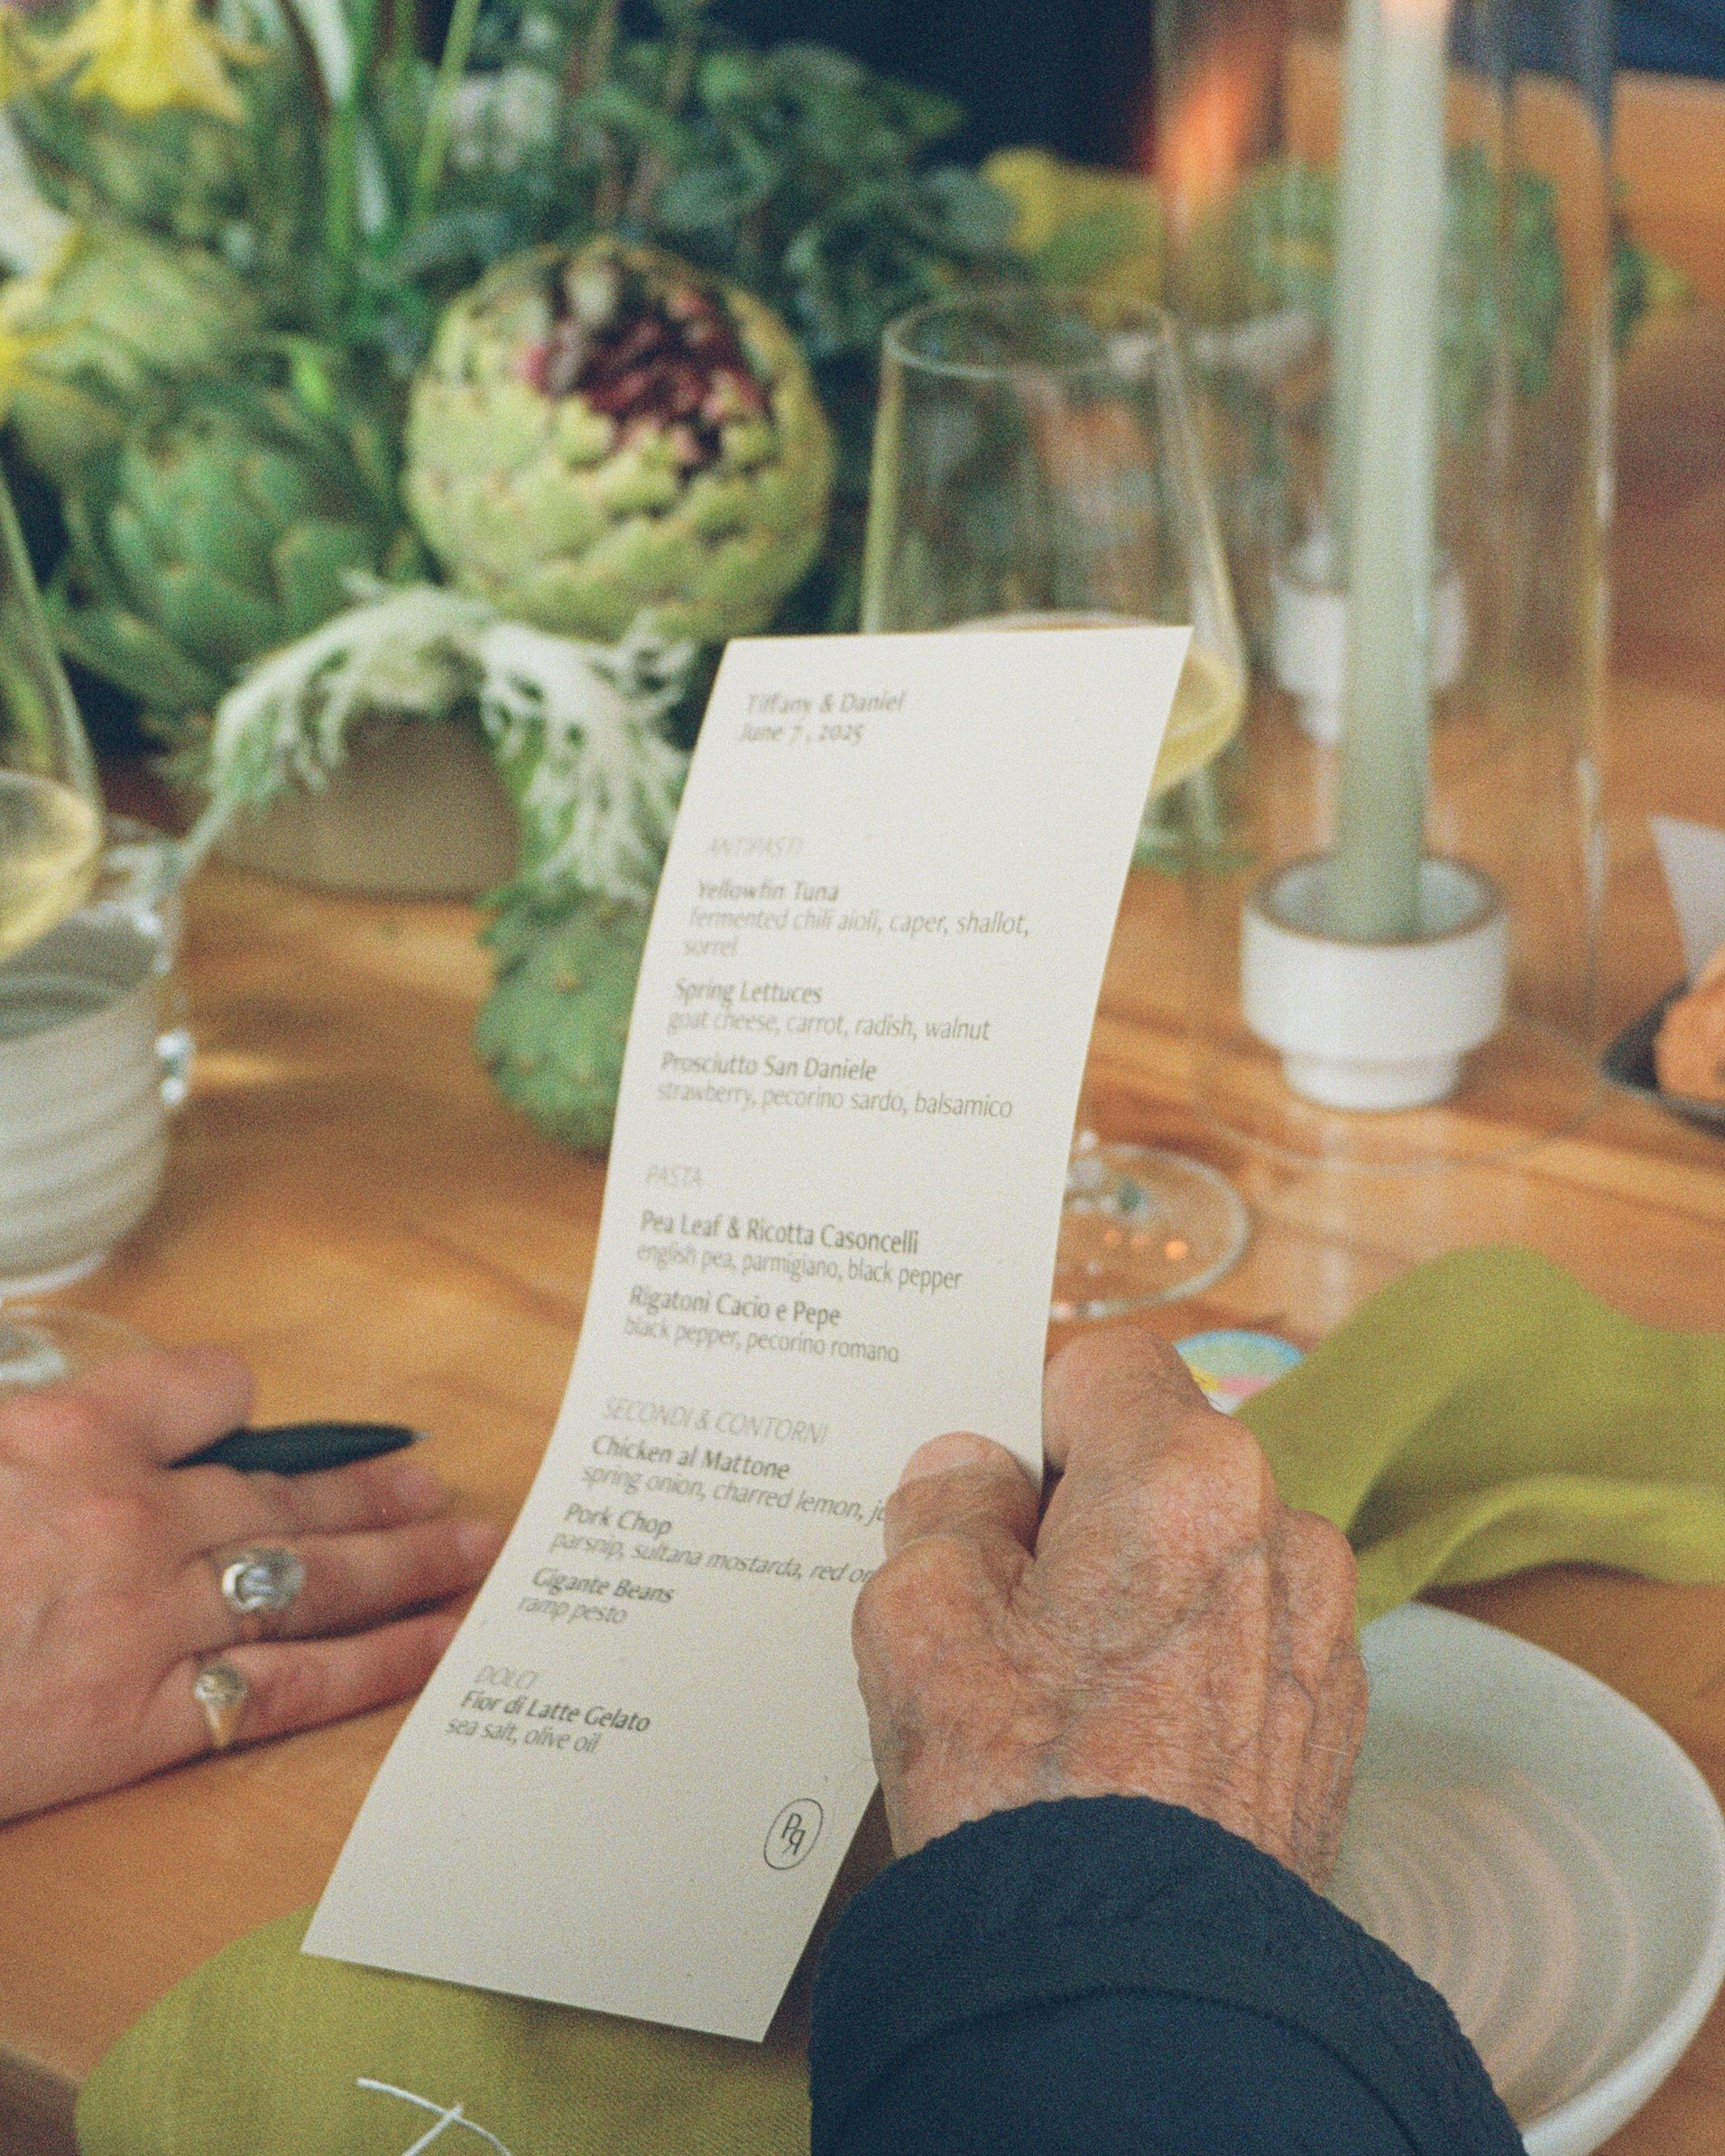 Tiffany & Daniel
June 7, 2025
ANTIPASTI
Yellowfin Tuna
fermented chili aioli, caper, shallot,
sorrel
Spring Lettuces
goat cheese, carrot, radish, walnut
Prosciutto San Daniele
strawberry, pecorino sardo, balsamico
PASTA
Pea Leaf & Ricotta Casoncelli
english pea, parmigiano, black pepper
Rigatoni Cacio e Pepe
black pepper, pecorino romano
SECONDI & CONTORNI
Chicken al Mattone
spring onion, charred lemon,
Pork Chop
parsnip, sultana mostarda, red
Gigante Beans
ramp pesto
DOLCI
Fior di Latte Gelato
sea salt, olive oil